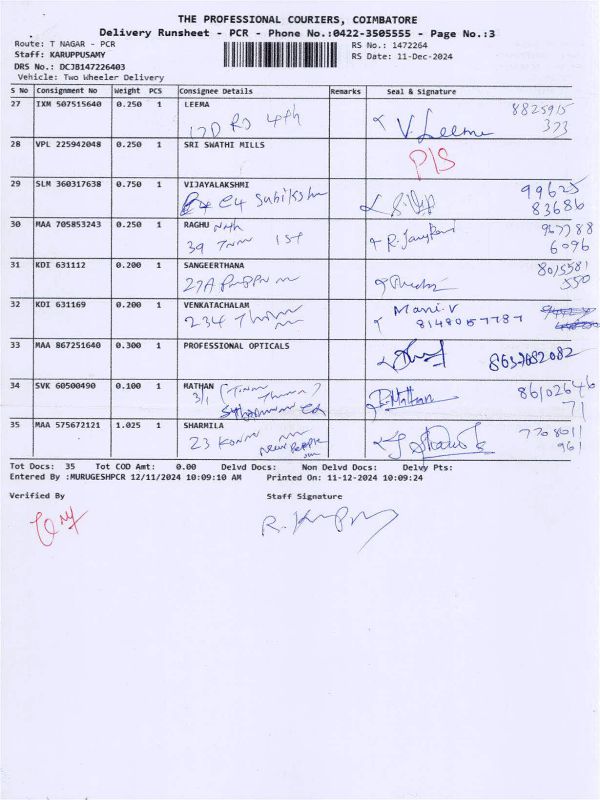 THE PROFESSIONAL COURIERS, COIMBATORE
Delivery Runsheet - PCR - Phone No.:0422-3505555 - Page No.:3
Route: T NAGAR - PCR
Staff: KARUPPUSAMY
DRS No.: DCJB147226403
Vehicle: Two Wheeler Delivery
RS No.: 1472264
RS Date: 11-Dec-2024
S No Consignment No Weight PCS Consignee Details Remarks Seal & Signature
27 IXM 507515640 0.250 1 LEEMA
17D RJ 4th V. Leema 8825915
373
28 VPL 225942048 0.250 1 SRI SWATHI MILLS
P/S
29 SLM 360317638 0.750 1 VIJAYALAKSHMI
E4 99625
83686
30 MAA 705853243 0.250 1 RAGHU
39 1st 967788
6096
31 KDI 631112 0.200 1 SANGEERTHANA
27A 8015581
550
32 KDI 631169 0.200 1 VENKATACHALAM
234 Mani.V
8148057787
33 MAA 867251640 0.300 1 PROFESSIONAL OPTICALS
8637682082
34 SVK 60500490 0.100 1 MATHAN
3/1 R. Mathan 86102646
71
35 MAA 575672121 1.025 1 SHARMILA
23 7708011
961
Tot Docs: 35 Tot COD Amt: 0.00 Delvd Docs: Non Delvd Docs: Delvy Pts:
Entered By :MURUGESHPCR 12/11/2024 10:09:10 AM Printed On: 11-12-2024 10:09:24
Verified By Staff Signature